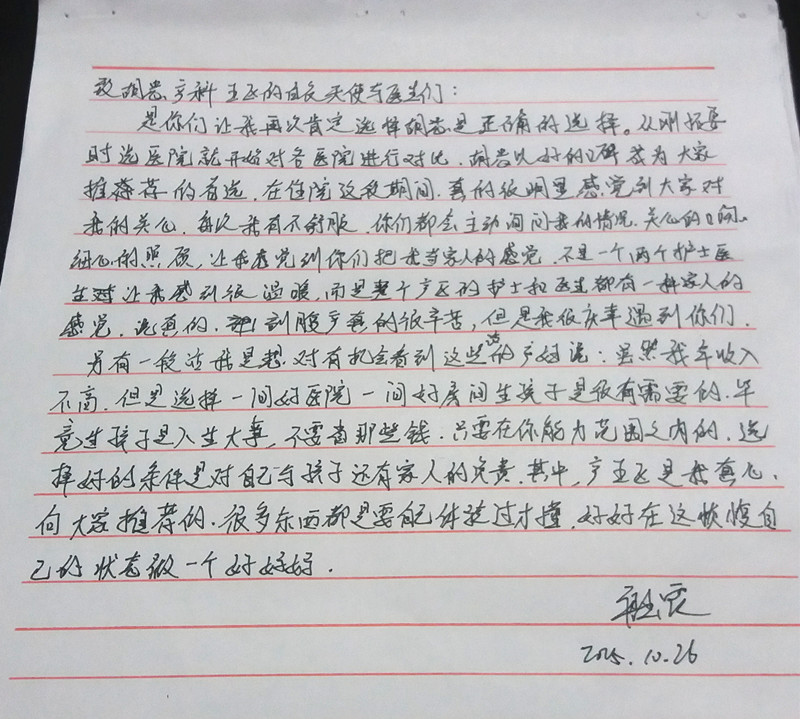 致胡忠产科五区的白衣天使与医生们：
是你们让我再次肯定选择胡忠是正确的选择。从刚好要
时选医院就开始对各医院进行对比，胡忠以好的口碑成为大家
推荐的首选，在住院这段期间，真的很明显感觉到大家对
我的关心，每次我有不舒服，你们都会主动询问我的情况，关心的口间。
细心的照顾，让我感觉到你们把我当家人的感觉，不是一个两个护士医
生对让我感到很温暖，而是整个产区的护士和医生都有一种家人的
感觉，说真的，剖腹产真的很辛苦，但是我很庆幸遇到你们，
另有一段话我是想对有机会看到这些话的产妇说：虽然我年收入
不高，但是选择一间好医院一间好房间生孩子是很有需要的，毕
竟生孩子是人生大事，不要省那些钱，只要在你能力范围之内的，选
择好的条件是对自己与孩子还有家人的负责，其中，产五区是我真心，
向大家推荐的，很多东西都是要自己体验过才懂，好好在这恢复自
己的状态做一个好妈妈。
2015.10.26